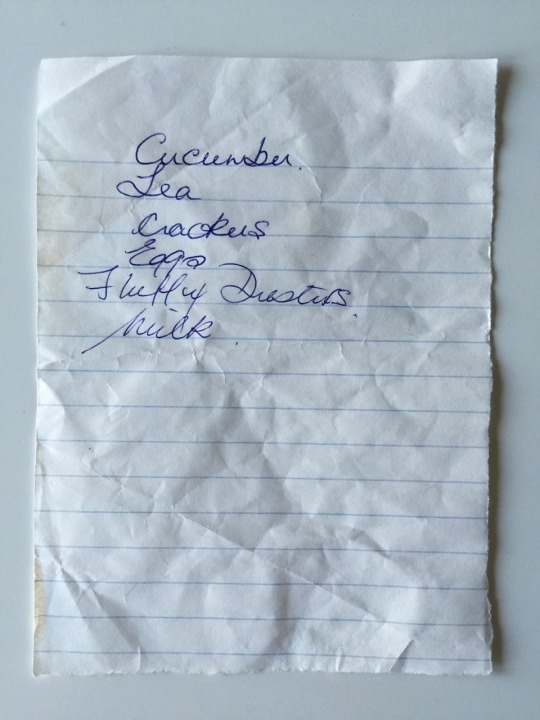 Cucumber.
Tea
Crackers
Eggs
Fluffy Dusters.
Milk.